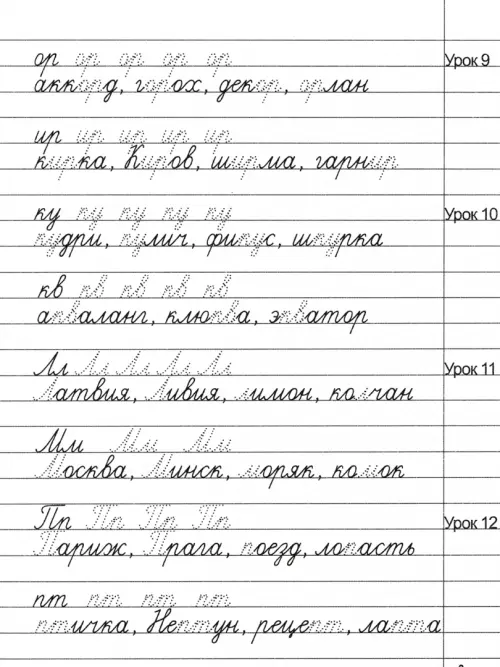 ор ор ор ор ор Урок 9
аккорд, горох, декор, орлан
ир ир ир ир ир
кирка, Киров, ширма, гарнир
ку ку ку ку ку Урок 10
кудри, кулич, фикус, шкурка
кв кв кв кв кв
акваланг, клюква, экватор
Лл Лл Лл Лл Лл Урок 11
Латвия, Ливия, лимон, колчан
Мм Мм Мм
Москва, Минск, моряк, комок
Пп Пп Пп Пп Урок 12
Париж, Прага, поезд, лопасть
пт пт пт пт
птичка, Нептун, рецепт, лапта